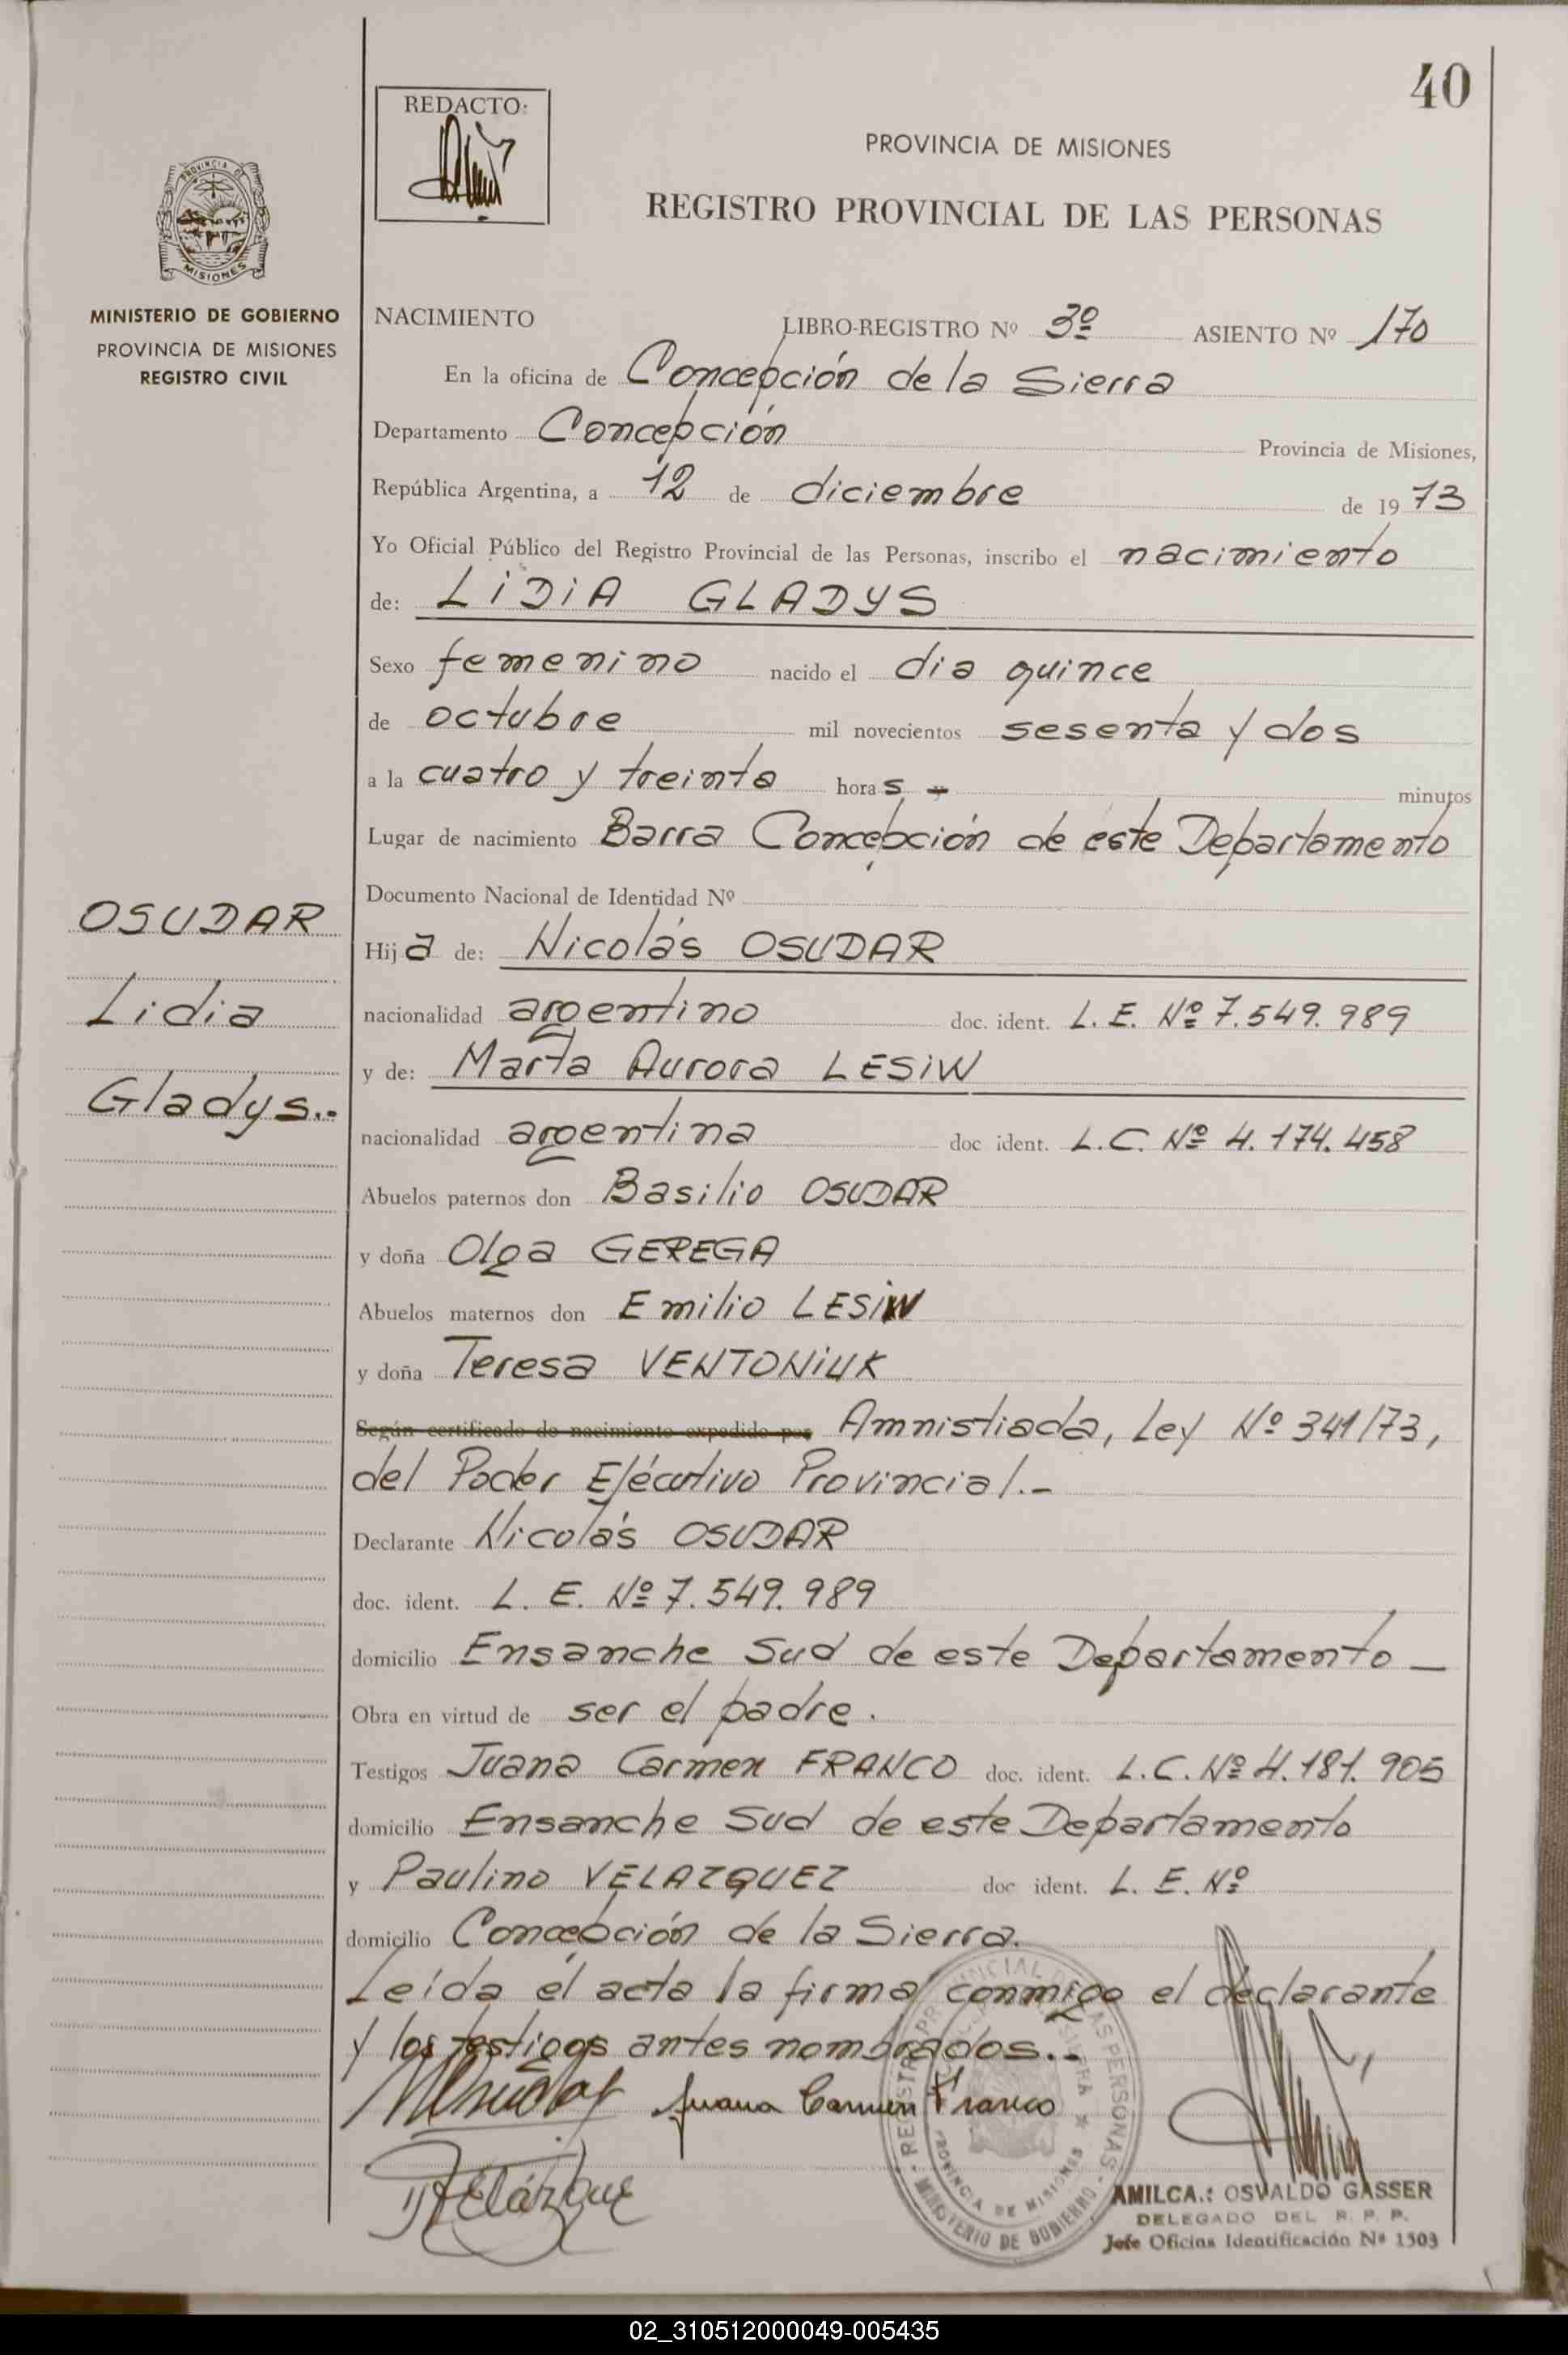 40
REDACTO:
PROVINCIA DE MISIONES
REGISTRO PROVINCIAL DE LAS PERSONAS
PROVINCIA DE
MISIONES
MINISTERIO DE GOBIERNO
PROVINCIA DE MISIONES
REGISTRO CIVIL
NACIMIENTO LIBRO-REGISTRO Nº 3º ASIENTO Nº 170
En la oficina de Concepción de la Sierra
Departamento Concepción Provincia de Misiones,
República Argentina, a 12 de diciembre de 1973
Yo Oficial Público del Registro Provincial de las Personas, inscribo el nacimiento
de: LiDiA GLADYS
Sexo femenino nacido el dia quince
de octubre mil novecientos sesenta y dos
a la cuatro y treinta horas y minutos
Lugar de nacimiento Barra Concepción de este Departamento
Documento Nacional de Identidad Nº
OSUDAR
Lidia
Gladys.-
Hija de: Nicolás OSUDAR
nacionalidad argentino doc. ident. L. E. Nº 7.549.989
y de: Marta Aurora LESiW
nacionalidad argentina doc ident. L.C. Nº 4.174.458
Abuelos paternos don Basilio OSUDAR
y doña Olga GEREGA
Abuelos maternos don Emilio LESiW
y doña Teresa VENTONiUK
Según certificado de nacimiento expedido por Amnistiada, Ley Nº 341/73,
del Poder Ejécutivo Provincial.-
Declarante Nicolás OSUDAR
doc. ident. L. E. Nº 7.549.989
domicilio Ensanche Sud de este Departamento -
Obra en virtud de ser el padre.
Testigos Juana Carmen FRANCO doc. ident. L.C. Nº 4.181.905
domicilio Ensanche Sud de este Departamento
y Paulino VELAZQUEZ doc ident. L. E. Nº
domicilio Concepción de la Sierra.
Leída el acta la firma conmigo el declarante
y los testigos antes nombrados.-
Juana Carmen Franco
REGISTRO PROVINCIAL DE LAS PERSONAS
PROVINCIA DE MISIONES
MINISTERIO DE GOBIERNO
AMILCA.: OSVALDO GASSER
DELEGADO DEL R. P. P.
Jefe Oficina Identificación Nº 1503
02_310512000049-005435